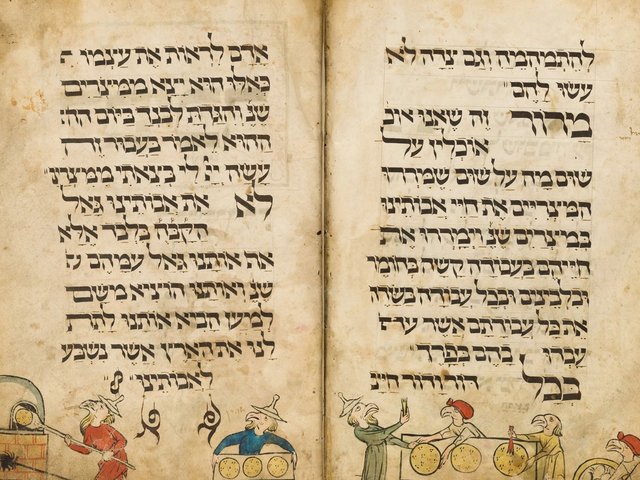 להתמהמה וגם צדה לא
עשו להם
מרור זה שאנו אוכ
אוכלין על
שום מה על שום שמררו
המצריים את חיי אבותינו
במצרים שנ וימררו את
חייהם בעבודה קשה בחומ
ובלבינים ובכל עבודה בשדה
את כל עבודתם אשר
עבדו בהם בפרך
בכל דור ודור חייב
אדם לראות את עצמו
כאלו הוא יצא ממצרים
שנ והגדת לבנך ביום ההו
ההוא לאמר בעבור זה
עשה יי לי בצאתי ממצרים
לא את אבותינו גאל
הקבה בלבד אלא
את אותנו גאל עמהם
שנ ואותנו הוציא משם
למען הביא אותנו לתת
לנו את הארץ אשר נשבע
לאבותינו